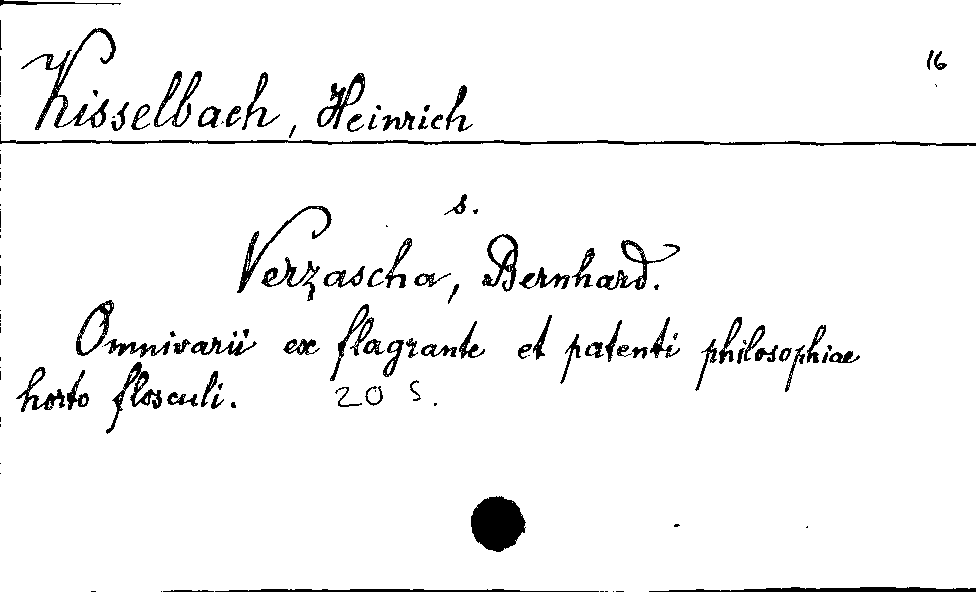 16
Kisselbach, Heinrich
s.
Verzascha, Bernhard.
Omnivarii ex flagrante et patenti philosophiae
horto flosculi. 20 S.